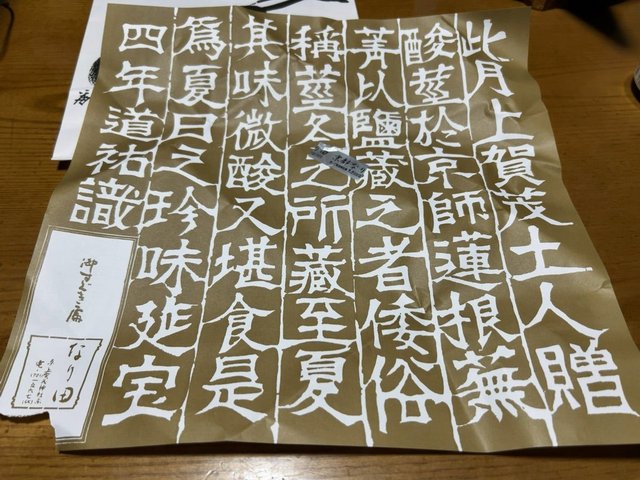 此月上賀茂土人贈
酸莖於京師蓮根蕪
菁以鹽藏之者倭俗
稱莖冬之所藏至夏
其味微酸又堪食是
爲夏日之珍味延宝
四年道祐識
御すぐき處
なり田